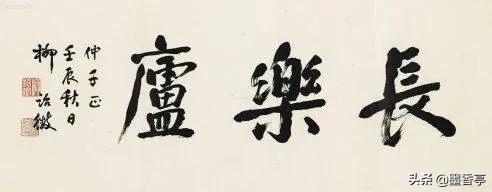 長樂廬
仲子正
壬辰秋日
柳詒徵
头条 @墨香亭